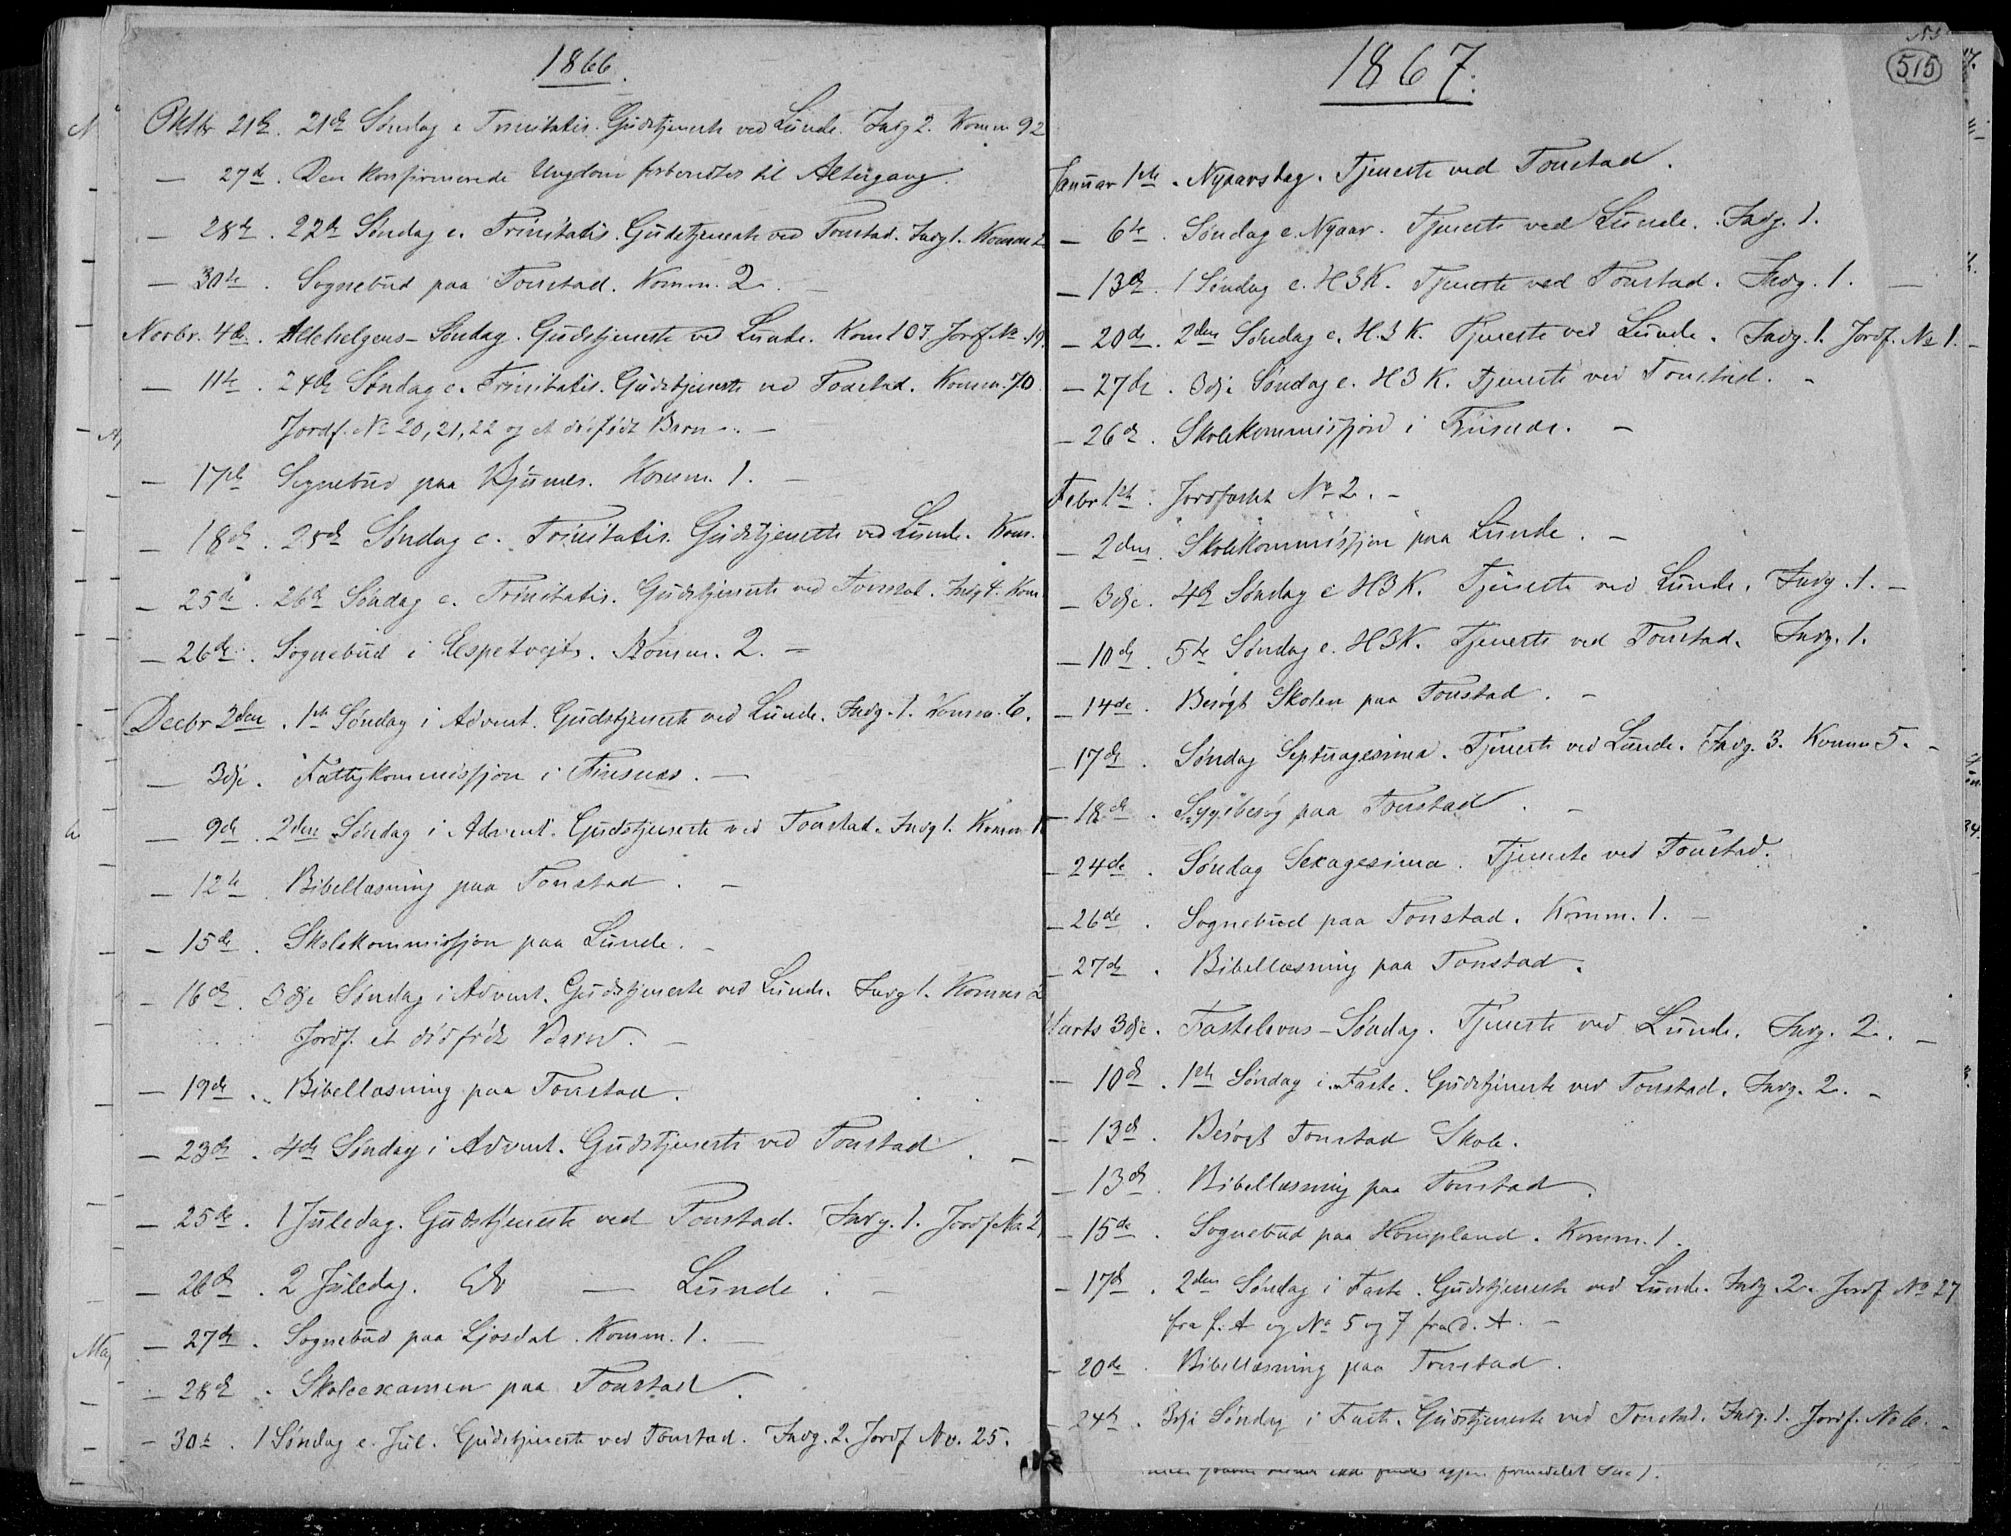 1866.
Oktbr 21de. 21de Søndag e. Trinitatis. Gudstjeneste ved Lunde. Indg 2. Komm 92
— 27de. Den konfirmerede Ungdom forberedtes til Altergang.
— 28de. 22de Søndag e. Trinitatis. Gudstjeneste ved Tonstad. Indg 1. Komm
— 30te. Sognebud paa Tonstad. Komm. 2. —
Novbr. 4de. Allehelgens-Søndag. Gudstjeneste ved Lunde. Kom 107 Jordf. No 19.
— 11te. 24de Søndag e. Trinitatis. Gudstjeneste ved Tonstad. Komm. 70
Jordf. No 20, 21, 22 og et dødfødt Barn. —
— 17de Sognebud paa Komm. 1. —
— 18de. 25de Søndag e. Trinitatis. Gudstjeneste ved Lunde. Kom.
— 25de. 26de Søndag e. Trinitatis. Gudstjeneste ved Tonstad. Indg 4. Kom
— 26de. Sognebud i Espetvejt. Komm. 2. —
Decbr 2den. 1ste Søndag i Advent. Gudstjeneste ved Lunde. Indg. 1. Komm. 6.
— 3dje. Fattigkommissjon i Fiusnes. —
— 9de. 2den Søndag i Advent. Gudstjeneste ved Tonstad. Indg 1. Komm
— 12te. Bibellæsning paa Tonstad. —
— 15de. Skolekommissjon paa Lunde. —
— 16de. 3dje Søndag i Advent. Gudstjeneste ved Lunde. Indg 1. Komm 2
Jordf. et dødfødt Barn. —
— 19de. Bibellæsning paa Tonstad.
— 23de. 4de Søndag i Advent. Gudstjeneste ved Tonstad. —
— 25de. 1 Juledag. Gudstjeneste ved Tonstad. Indg. 1. Jordf No 2
— 26de. 2 Juledag. Do — Lunde. —
— 27de. Sognebud paa Ljosdal. Komm. 1. —
— 28de. Skoleexamen paa Tonstad.
— 30te. 1 Søndag e. Jul. Gudstjeneste ved Tonstad. Indg. 2. Jordf No. 25.
515
1867.
Januar 1ste. Nyaarsdag. Tjeneste ved Tonstad.
— 6te. Søndag e. Nyaar. Tjeneste ved Lunde. Indg. 1.
— 13de. 1 Søndag e. H3K. Tjeneste ved Tonstad. Indg. 1. —
— 20de. 2den Søndag e. H.3K. Tjeneste ved Lunde. Indg. 1. Jordf. No 1. —
— 27de. 3dje Søndag e. H3K. Tjeneste ved Tonstad. —
— 26de. Skolekommissjon i Fiusnes. —
Febr 1ste. Jordfæstet No 2. —
— 2den. Skolekommissjon paa Lunde. —
— 3dje. 4de Søndag e H3K. Tjeneste ved Lunde. Indg. 1. —
— 10de. 5te Søndag e. H3K. Tjeneste ved Tonstad. Indg. 1.
— 14de. Besøgt Skolen paa Tonstad. —
— 17de. Søndag Septuagesima. Tjeneste ved Lunde. Indg. 3. Komm 5. —
— 18de. Sygebesøg paa Tonstad. —
— 24de. Søndag Sexagesima. Tjeneste ved Tonstad.
— 26de. Sognebud paa Tonstad. Komm. 1. —
— 27de. Bibellæsning paa Tonstad.
Marts 3dje. Fastelavns-Søndag. Tjeneste ved Lunde. Indg. 2. —
— 10de. 1ste Søndag i Faste. Gudstjeneste ved Tonstad. Indg. 2. —
— 13de. Besøgt Tonstad Skole.
— 13de. Bibellæsning paa Tonstad.
— 15de. Sognebud paa Hompland. Komm. 1.
— 17de. 2den Søndag i Faste. Gudstjeneste ved Lunde. Indg. 2. Jordf No 27
fra f. A og No 5 og 7 fra d. A. —
— 20de. Bibellæsning paa Tonstad.
— 24de. 3dje Søndag i Faste. Gudstjeneste ved Tonstad. Indg. 1. Jordf. No 6. —